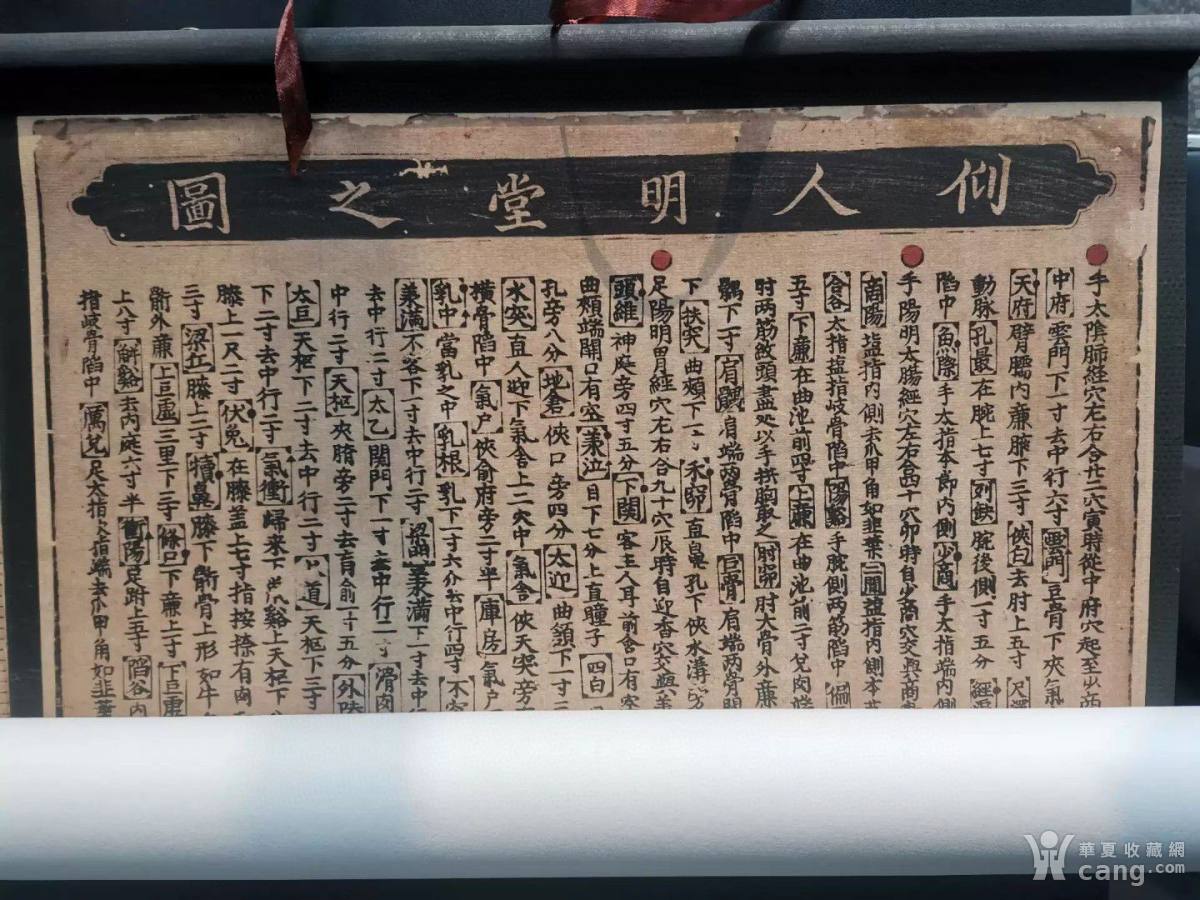 仰人明堂之圖
手太陰肺經穴左右合廿二穴寅時從中府穴起至少商
中府雲門下一寸去中行六寸雲門巨骨下夾氣
天府臂臑內廉腋下三寸俠白去肘上五寸尺澤
動脉孔最在腕上七寸列缺腕後側一寸五分經渠
陷中魚際手大指本節內側少商手大指端內側
手陽明大腸經穴左右合四十穴卯時自少商穴交與商
商陽塩指內側去爪甲角如韭葉二間塩指內側本
合谷大指塩指歧骨陷中陽谿手腕側兩筋陷中偏
五寸下廉在曲池前四寸上廉在曲池前二寸
肘兩筋 頭盡处以手拱胸取之肘窌肘大骨外廉
髃下一寸肩髃肩端兩骨陷中巨骨肩端兩骨間
下扶突曲頰下一寸禾窌直鼻孔下俠水溝旁
足陽明胃經穴左右合九十穴辰時自迎香穴交與
頭維神庭旁四寸五分下關客主人耳前合口有空
曲頰端開口有空承泣目下七分上直瞳子四白
孔旁八分地倉俠口旁四分大迎曲頷下一寸
水突直人迎下氣舍上二穴中氣舍俠天突旁
橫骨陷中氣户俠俞府旁二寸半庫房氣户
乳中當乳之中乳根乳下一寸六分去中行四寸不容
承滿不容下一寸去中行二寸梁門承滿下一寸去中
去中行二寸太乙関門下一寸去中行二寸滑肉
中行二寸天枢夾臍旁二寸去肓俞一寸五分外陵
太巨天枢下二寸去中行二寸水道天枢下三寸
下二寸去中行二寸氣衝歸来下鼠谿上天枢下
膝上一尺二寸伏兔在膝蓋上七寸指按捺有肉
三寸梁丘膝上二寸犢鼻膝下䯒骨上形如牛
䯒外廉上巨虛三里下三寸條口下廉上一寸下巨虛
上八寸解谿去內庭六寸半衝陽足跗上五寸陷谷內
指歧骨陷中厲兌足大指次指端去爪甲角如韭葉
華夏收藏網
cang.com